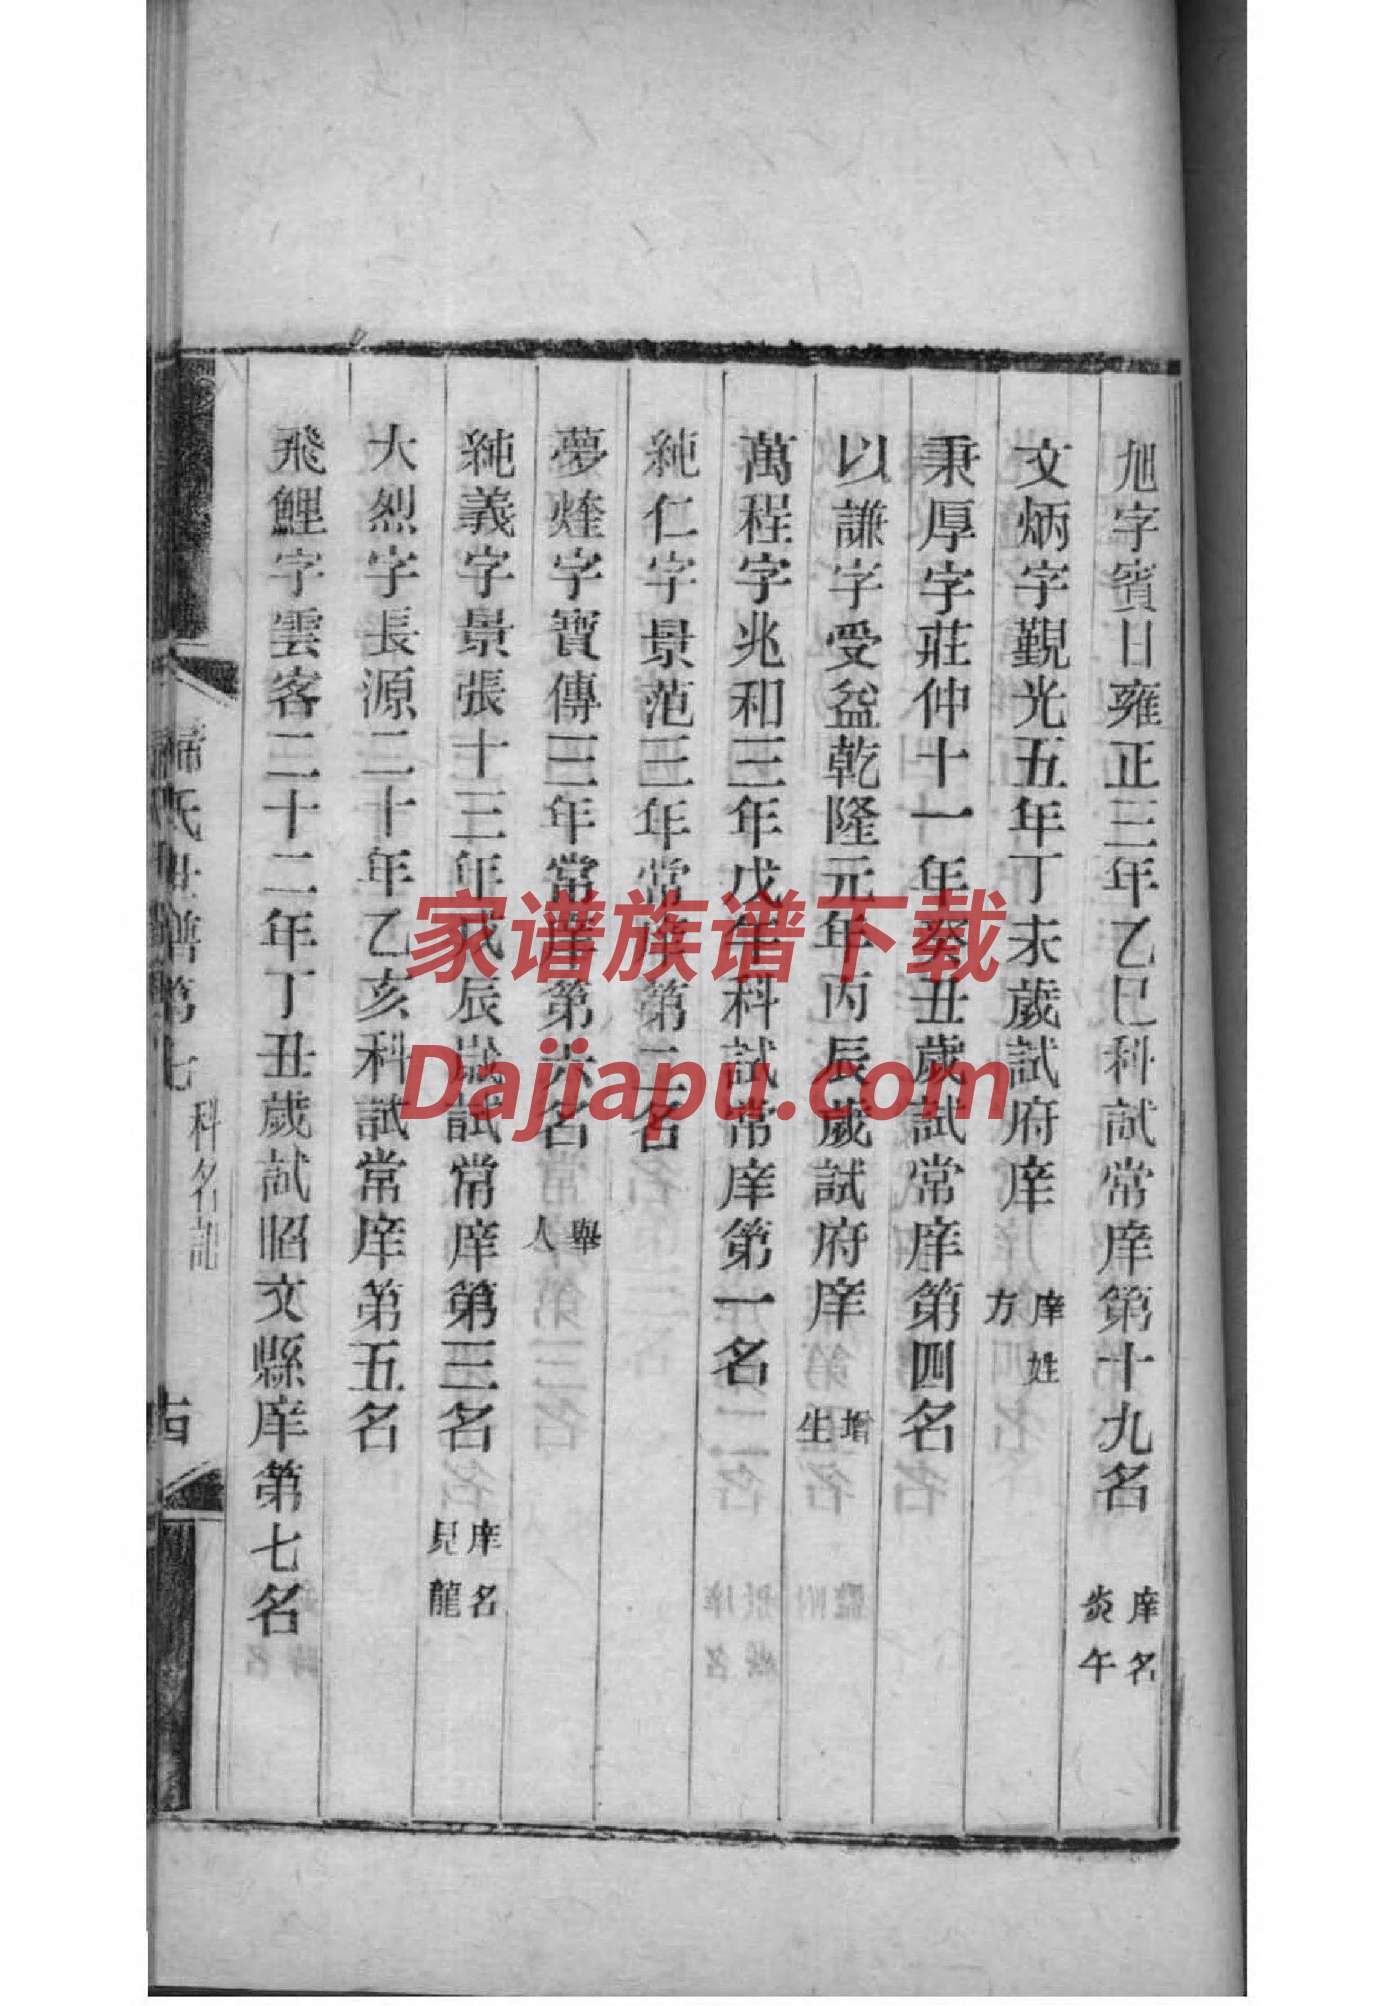 旭字賓日雍正三年乙巳科試常庠第十九名 庠名炎午
文炳字覲光五年丁未歲試府庠 庠姓方
秉厚字莊仲十一年癸丑歲試常庠第四名
以謙字受益乾隆元年丙辰歲試府庠 增生
萬程字兆和三年戊午科試常庠第一名
純仁字景范三年常庠第二名
夢煃字寶傳三年常庠第六名 舉人
純義字景張十三年戊辰歲試常庠第三名 庠名見龍
大烈字長源二十年乙亥科試常庠第五名
飛鯉字雲客二十二年丁丑歲試昭文縣庠第七名
歸氏世譜第七 科名記
家谱族谱下载
Dajiapu.com